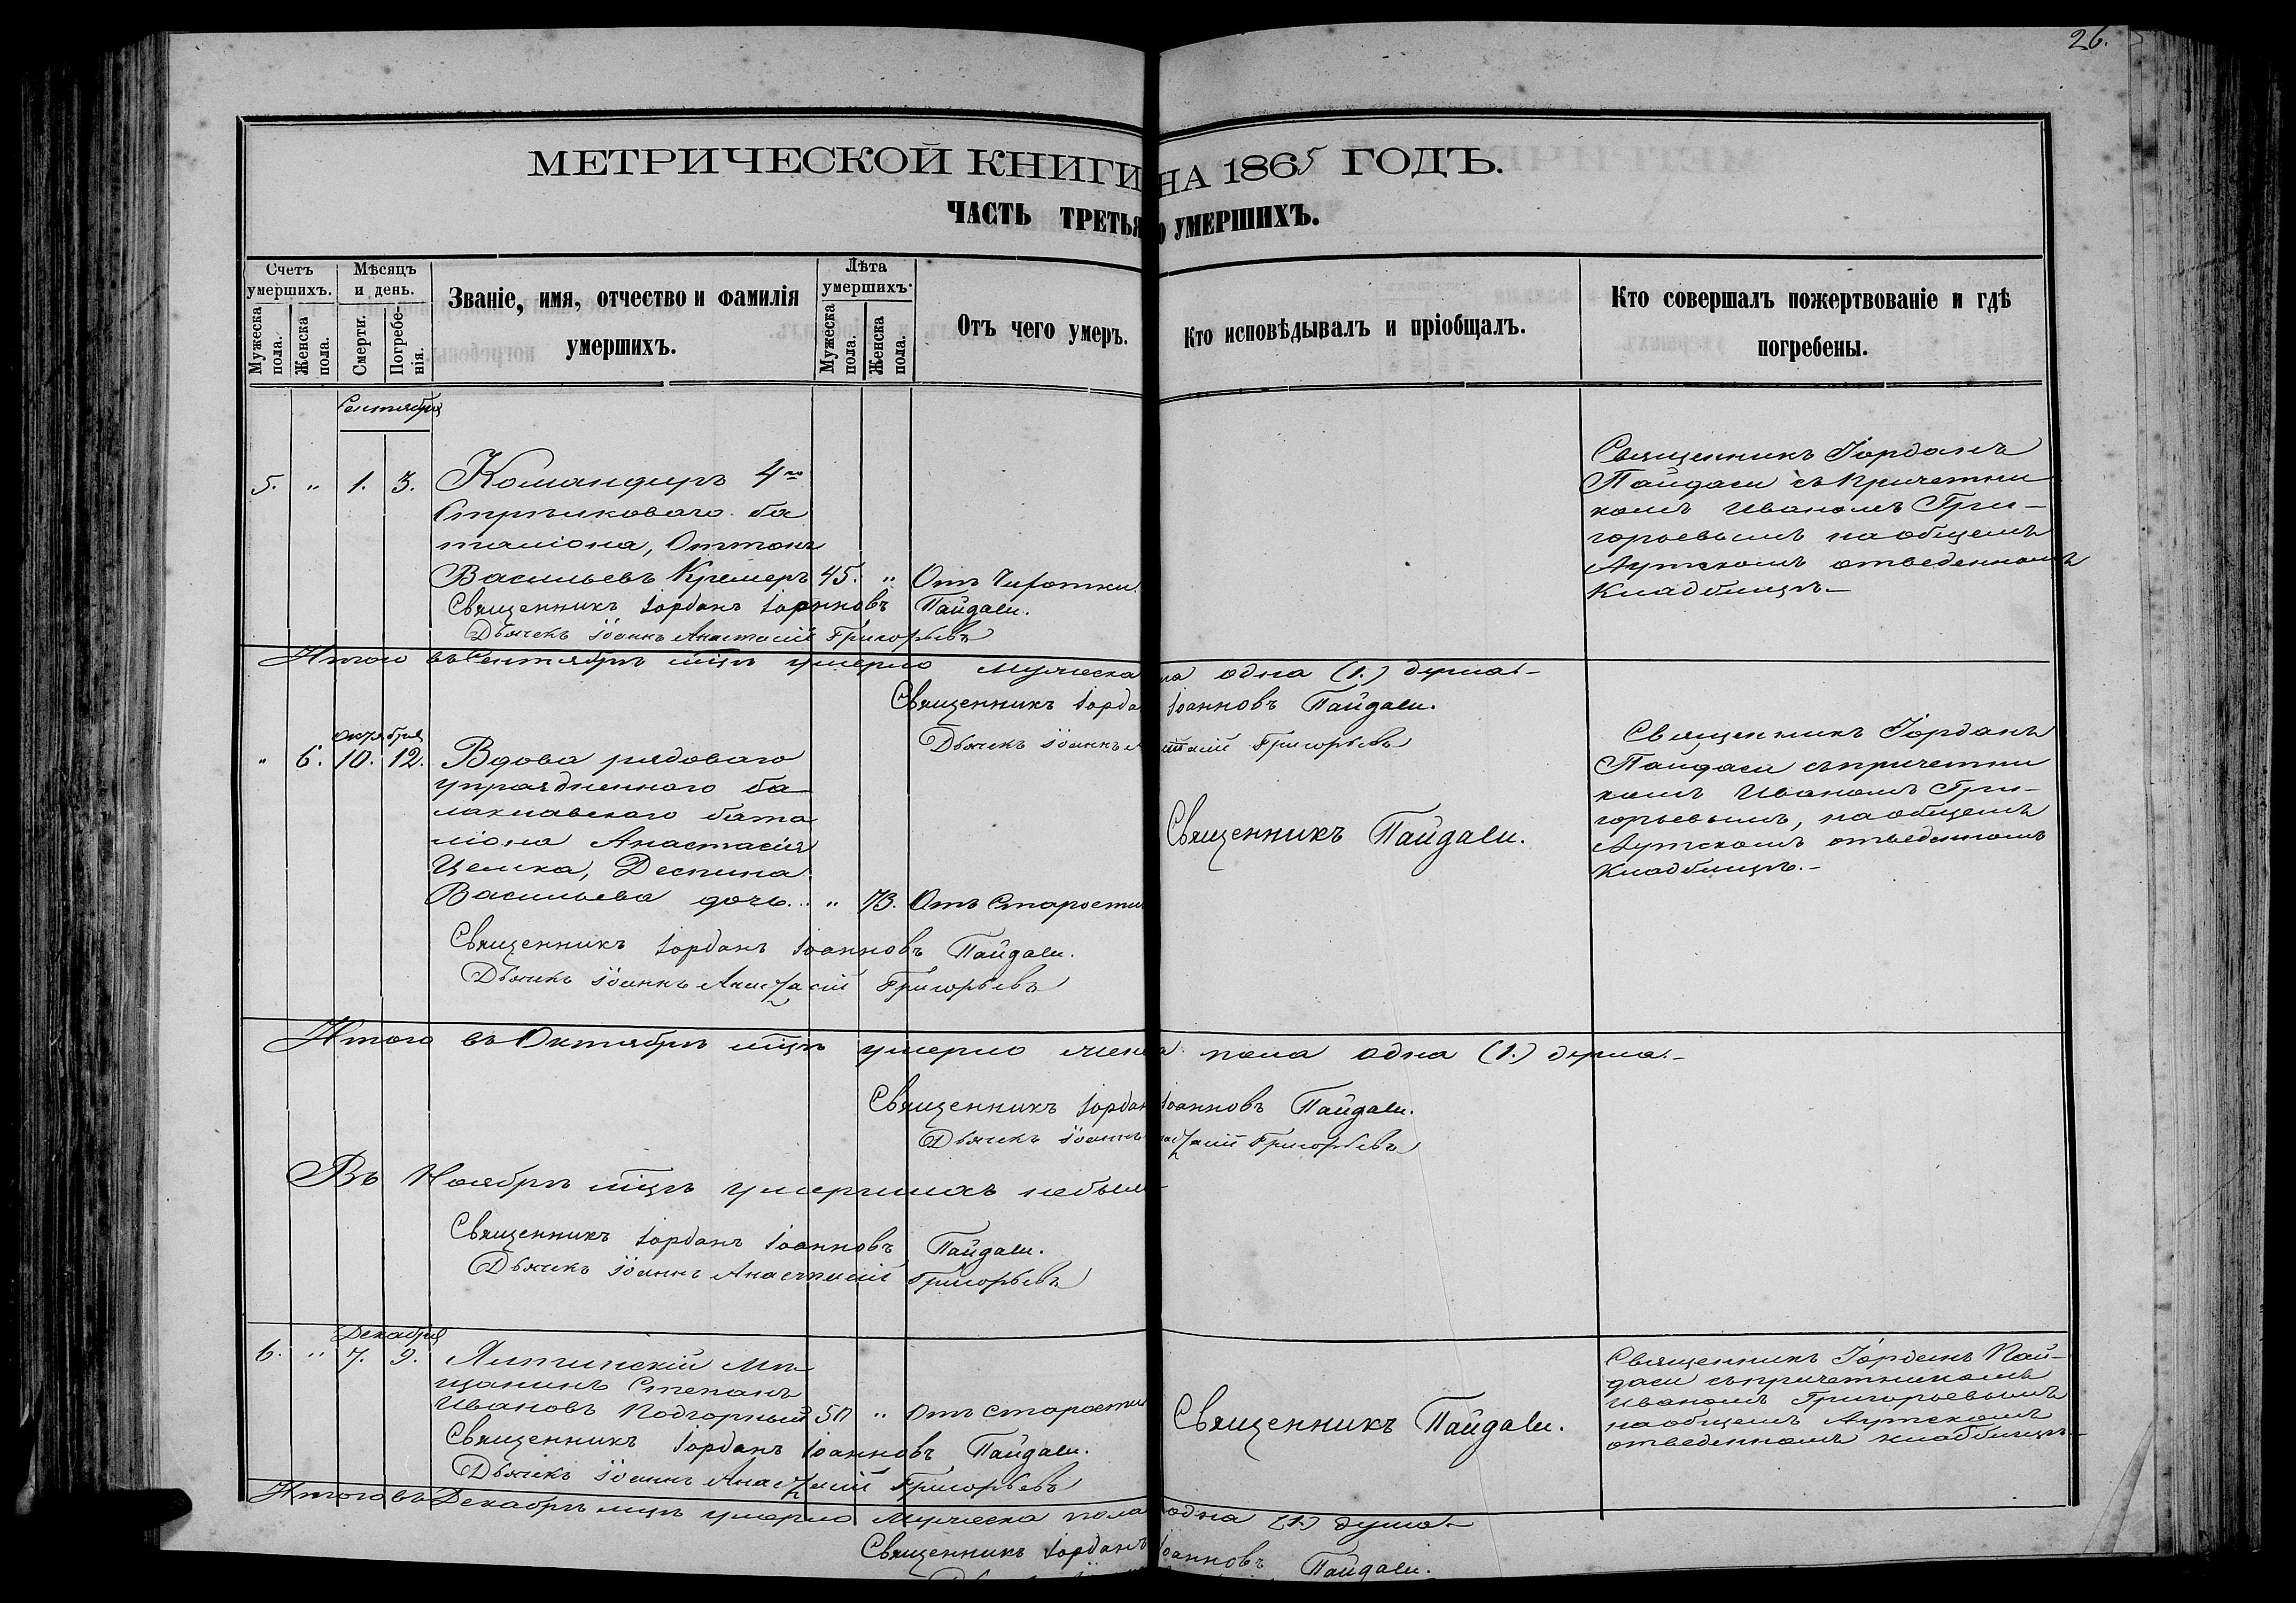 26.
МЕТРИЧЕСКОЙ КНИГИ НА 1865 ГОДЪ.
ЧАСТЬ ТРЕТЬЯ О УМЕРШИХЪ.
Счетъ умершихъ.
Мужеска пола.
Женска пола.
Мѣсяцъ и день.
Смерти.
Погребенія.
Званіе, имя, отчество и фамилія
умершихъ.
Лѣта умершихъ.
Мужеска пола.
Женска пола.
Отъ чего умеръ.
Кто исповѣдывалъ и пріобщалъ.
Кто совершалъ пожертвованіе и гдѣ
погребены.
Сентября
5. „ 1. 3. Командиръ 4го
Стрѣлковаго ба
таліона, Оттонъ
Васильевъ Кремеръ 45. „ Отъ Чахотки.
Священникъ Іорданъ
Пайдаси съ причетни
комъ Иваномъ Гри-
горьевымъ на общемъ
Аутскомъ отведенномъ
Кладбищѣ.-
Священникъ Іорданъ Іоанновъ Пайдаси.
Дьячекъ Іоаннъ Анастасій Григорьевъ
Итого въ Сентябрѣ мцѣ умерло мужеска одна (1.) душа.-
Священникъ Іорданъ Іоанновъ Пайдаси.
Дьячекъ Іоаннъ Григорьевъ
Октября
„ 6. 10. 12. Вдова рядоваго
упраздненнаго ба
лаклавскаго бата
ліона Анастасія
Целика, Деспина
Васильева дочь.. „ 73. Отъ Старости
Священникъ Пайдаси.
Священникъ Іорданъ
Пайдаси съ причетни
комъ Иваномъ Гри-
горьевымъ, на общемъ
Аутскомъ отведенномъ
Кладбищѣ.-
Священникъ Іорданъ Іоанновъ Пайдаси.
Дьячекъ Іоаннъ Анастасій Григорьевъ
Итого въ Октябрѣ мцѣ умерло женска пола одна (1.) душа.-
Священникъ Іорданъ Іоанновъ Пайдаси.
Дьячекъ Іоаннъ Григорьевъ
Въ Ноябрѣ мцѣ умершихъ небыло
Священникъ Іорданъ Іоанновъ Пайдаси.
Дьячекъ Іоаннъ Анастасій Григорьевъ
Декабря
6. „ 7. 9. Ялтинскій Мѣ-
щанинъ Степанъ
Ивановъ Подгорный 50 „ Отъ старости
Священникъ Пайдаси.
Священникъ Іорданъ Пай-
даси съ причетникомъ
Иваномъ Григорьевымъ
на общемъ Аутскомъ
отведенномъ кладбищѣ-
Священникъ Іорданъ Іоанновъ Пайдаси.
Дьячекъ Іоаннъ Анастасій Григорьевъ
Итого въ Декабрѣ мцѣ умерло Мужеска пола одна (1.) душа.-
Священникъ Іорданъ Іоанновъ Пайдаси.